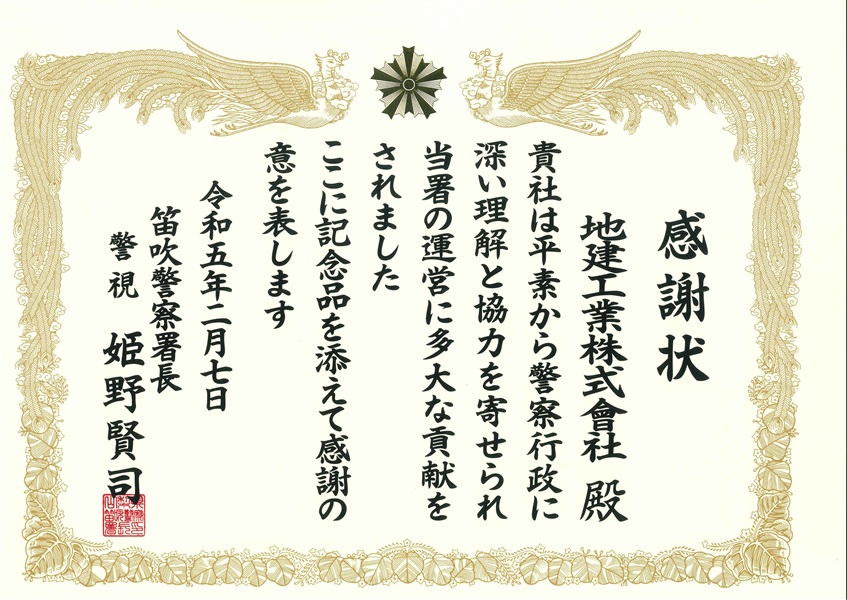 感謝状
地建工業株式會社 殿
貴社は平素から警察行政に
深い理解と協力を寄せられ
当署の運営に多大な貢献を
されました
ここに記念品を添えて感謝の
意を表します
令和五年二月七日
笛吹警察署長
警視 姫野賢司